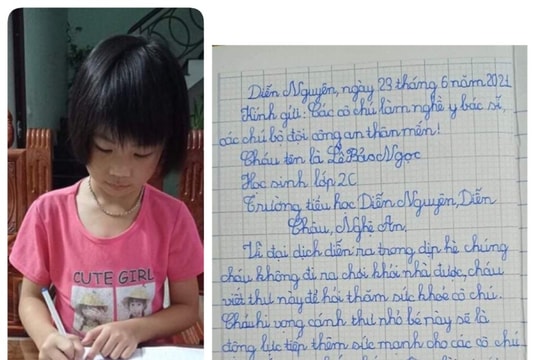 CUTE GIRL
Diễn Nguyên, ngày 23 tháng 6 năm 2021
Kính gửi: Các cô chú làm nghề y bác sĩ,
các chú bộ đội công an thân mến!
Cháu tên là Lê Bảo Ngọc
Học sinh lớp 2C
Trường tiểu học Diễn Nguyên, Diễn
Châu, Nghệ An,
Vì đại dịch diễn ra trong dịp hè chúng
cháu không đi ra chơi khỏi nhà được, cháu
viết thư này để hỏi thăm sức khoẻ cô chú.
Cháu hi vọng cánh thư nhỏ bé này sẽ là
động lực tiếp thêm sức mạnh cho các cô chú